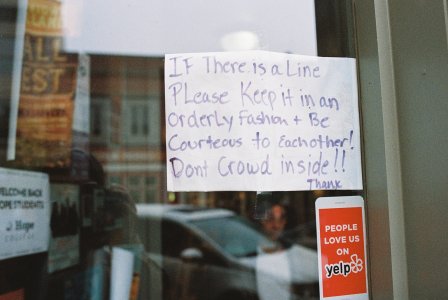 ALL
EST
IF There is a Line
PLease Keep it in an
orderLy Fashion + Be
Courteous to Eachother!
Dont Crowd inside!!
Thank
WELCOME BACK
HOPE STUDENTS
Hope
COLLEGE
PEOPLE
LOVE US
ON
yelp